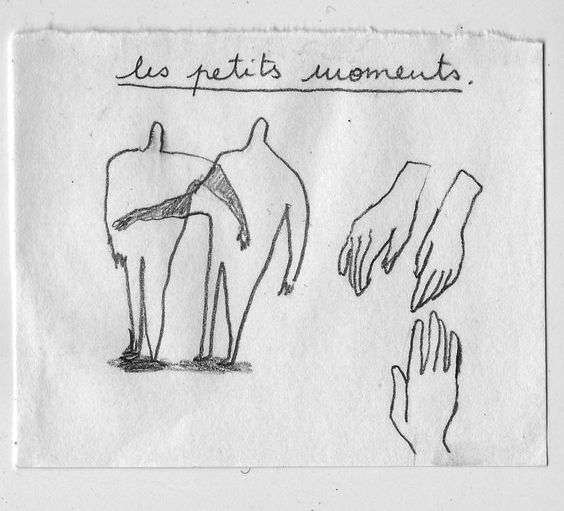 les petits moments.